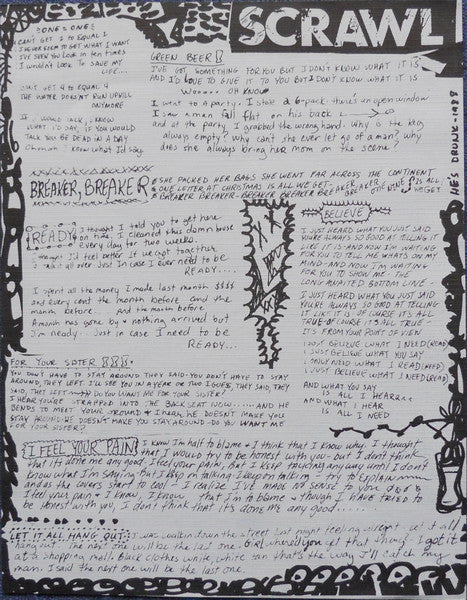 SCRAWL
ONE = ONE
CAN'T GET 1 TO EQUAL 1
I NEVER SEEM TO GET WHAT I WANT
I'VE SEEN YOU LOOK 10 TEN TIMES
I WOULDN'T LOOK TO SAVE MY
LIFE...
GET 4 TO EQUAL 4
THE WATER DOESN'T RUN UPHILL
ANYMORE
IF I WOULD TALK, I KNOW
WHAT I'D SAY, IF YOU WOULD
TALK YOU BE DEAD IN A DAY
I know what I'd say.
GREEN BEER
I'VE GOT SOMETHING FOR YOU BUT I DON'T KNOW WHAT IT IS
AND I'D LOVE TO GIVE IT TO YOU BUT I DON'T KNOW WHAT IT IS
OH KNOW
I went to a party. I stole a 6-pack there's an open window
I saw a man fall flat on his back
and at the party, I grabbed the wrong hand. Why is the bag
always empty? Why can't she ever let go of a man? why
does she always bring her mom on the scene?
HE'S DRUNK-1988
BREAKER, BREAKER
SHE PACKED HER BAGS SHE WENT FAR ACROSS THE CONTINENT
ONE LETTER AT CHRISTMAS IS ALL WE GET.
BREAKER BREAKER BREAKER BREAKER
READY
I thought I told you to get here
on time, I cleaned this damn house
Every day for two weeks.
I thought I'd feel better if we got together
it all over just in case I ever need to be
READY....
I spent all the money I made last month $$$$
and every cent the month before and the
month before and the month before
A month has gone by & nothing arrived but
I'm ready just in case I need to be
READY...
BELIEVE
I JUST HEARD WHAT YOU JUST SAID
YOU'RE ALWAYS SO GOOD AT TELLING IT
LIKE IT IS AND NOW I'M WAITING
FOR YOU TO TELL ME WHAT'S ON MY
MIND-AND NOW I'M WAITING
FOR YOU TO SHOW ME-THE
LONG AWAITED BOTTOM LINE-
I JUST HEARD WHAT YOU JUST SAID
YOU'RE ALWAYS SO GOOD AT TELLING
IT LIKE IT IS OF COURSE IT'S ALL
TRUE-OF COURSE IT'S ALL TRUE-
FROM YOUR POINT OF VIEW
I JUST BELIEVE WHAT I NEED (READ)
I JUST BELIEVE WHAT YOU SAY
I ONLY NEED WHAT I READ (NEED)
I JUST BELIEVE WHAT I NEED (READ)
AND WHAT YOU SAY
IS ALL I HEAR
AND WHAT I HEAR
IS ALL I NEED
FOR YOUR SISTER
YOU DON'T HAVE TO STAY AROUND THEY SAID-YOU DON'T HAVE TO STAY
AROUND, THEY LEFT. I'LL SEE YOU IN A YEAR OR TWO I GUESS, THEY SAID, THEY
SAID, THEY LEFT DO YOU WANT ME FOR YOUR SISTER?
I HEAR YOU'RE STRAPPED INTO THE BACK SEAT NOW.....AND HE
BENDS TO MEET YOUR GROUND & I HEAR HE DOESN'T MAKE YOU
STAY AROUND-HE DOESN'T MAKE YOU STAY AROUND-DO YOU WANT ME
FOR YOUR SISTER?
I FEEL YOUR PAIN
I know I'm half to blame & I think that I know why. I thought
that I would try to be honest with you-but I don't think
that it's done me any good. I feel your pain, but I keep touching anyway until I don't
know what I'm saying but I keep on talking-I keep on talking-try to explain
and as the covers start to cool-I realize I've whored sense to you
I feel your pain & I know, I know that I'm to blame & though I HAVE TRIED TO
be honest with you, I don't think that it's done me any good.......
LET IT ALL HANG OUT
I was walkin down the street last night feeling Let it all
hang out. The next one will be the last one. GIRL, where'd you get that thing? I got it
at a shopping mall. Black clothes white, white tan that's the way I'll catch my
man. I said the next one will be the last one.